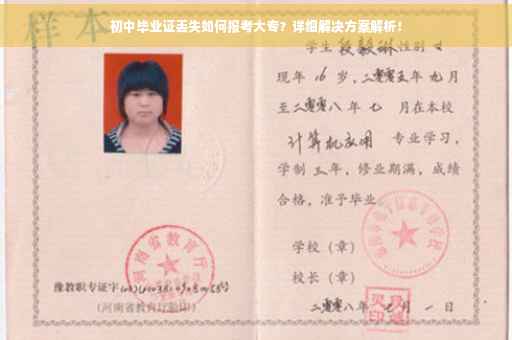 初中毕业证丢失如何报考大专？详细解决方案解析！
样本
学生 段毅琳 性别 女
现年 16 岁，二零零五年 九 月
至二零零八 年 七 月在本校
计算机应用 专业学习，
学制 三 年，修业期满，成绩
合格，准予毕业
学校（章）
校长（章）
二零零八年 月 一 日
河南省教育厅
豫教职专证字
(河南省教育厅验印)